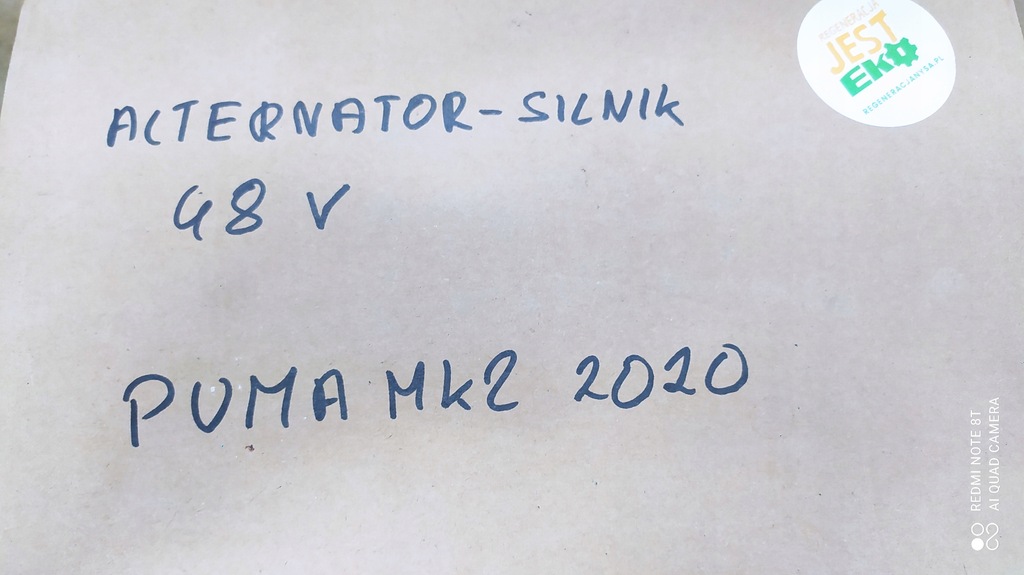 ALTERNATOR-SILNIK
48 V
PUMA MK2 2020
REGENERACJA
JEST
EKO
REGENERACJANYSA.PL
REDMI NOTE 8T
AI QUAD CAMERA